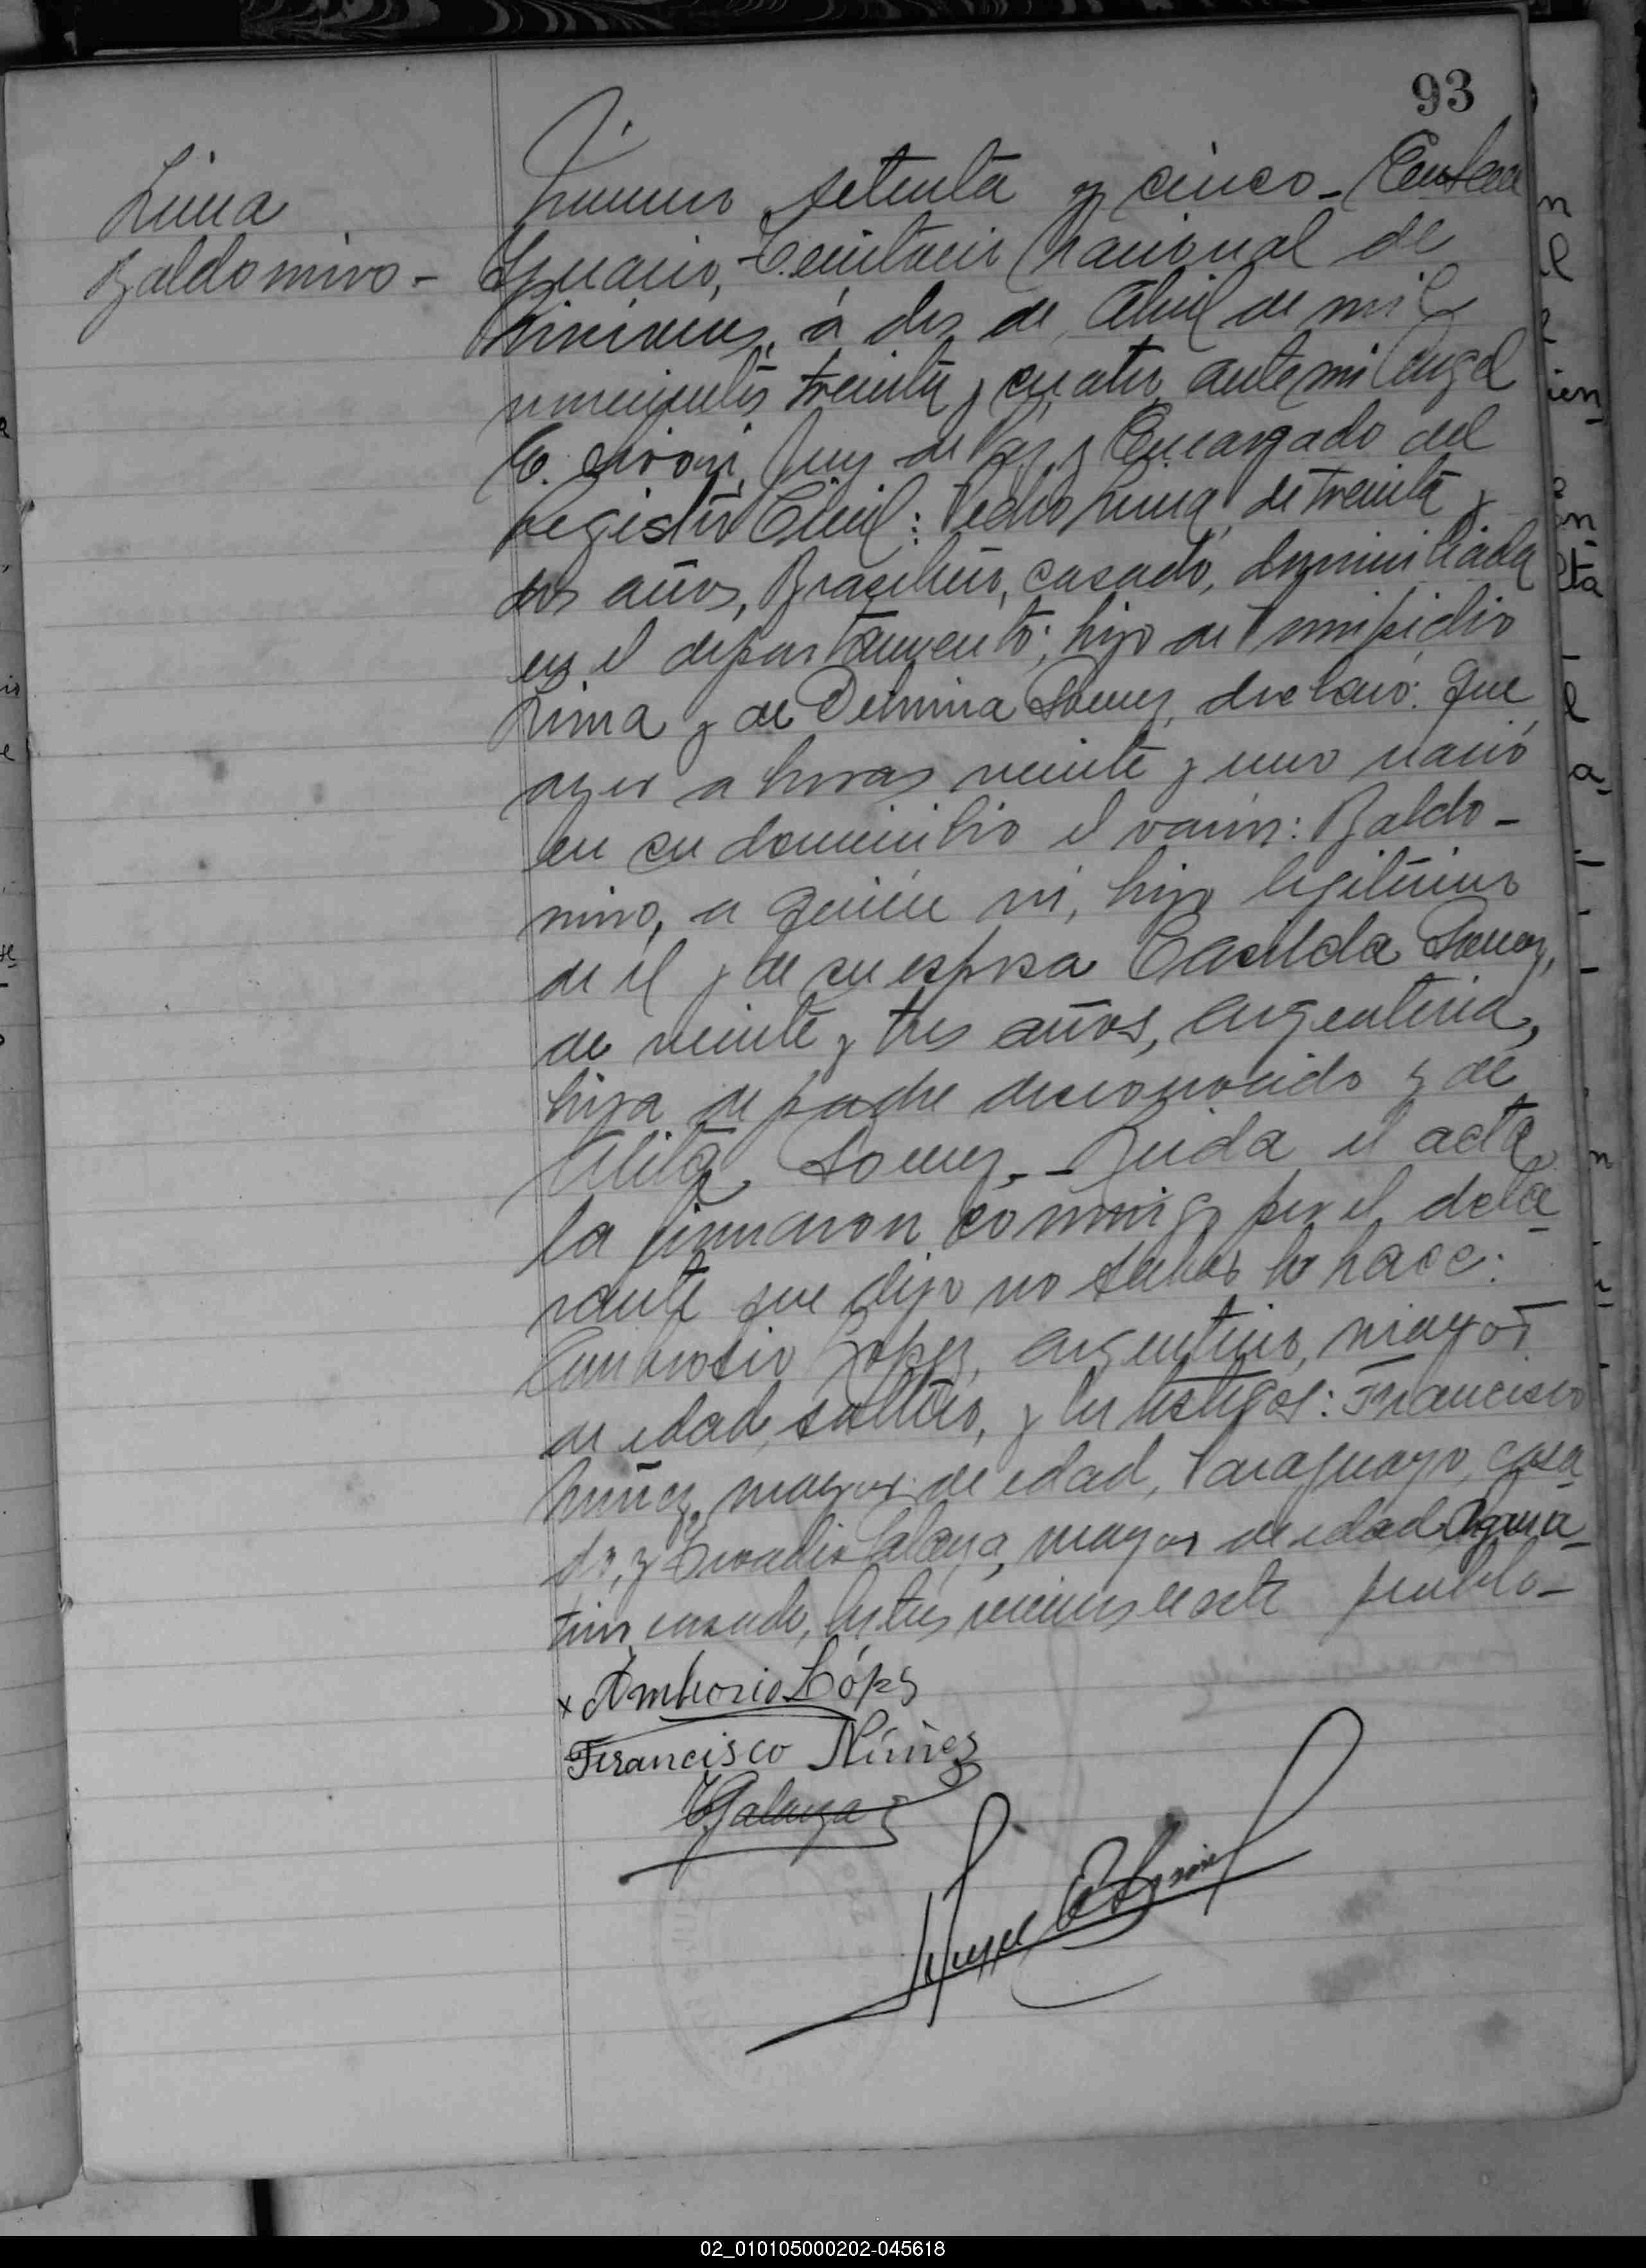 93
Lima
Baldomiro -
Numero setenta y cinco - En San
Ignacio, Territorio Nacional de
Misiones, á dos de Abril de mil
novecientos treinta y cuatro, ante mi Angel
E. Juez de Paz y Encargado del
Registro Civil: Pedro Lima, de treinta y
dos años, Brasilero, casado, domiciliado
en el departamento; hijo de
Lima y de Delmira Gomez, declaró: Que
ayer a horas veinte y uno nació
en su domicilio el varón: Baldo-
miro, a quién vi, hijo legitimo
de el y de su esposa Casilda Gomez,
de veinte y tres años, Argentina,
hija de padre desconocido y de
Gomez - Leida el acta
la firmaron conmigo, por el decla-
rante que dijo no saber lo hace:
Ambrosio Lopez, argentino, mayor
de edad, soltero, y los testigos: Francisco
Nuñez, mayor de edad, Paraguayo, casa-
do, y Galarza, mayor de edad, Argen-
tino, casado, estos vecinos de este pueblo -
x Ambrosio López
Francisco Núñez
Galarza
Angel E.
02_010105000202-045618